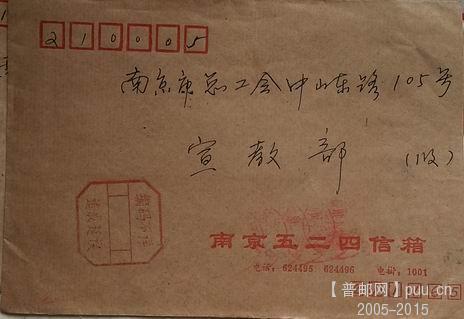 210005
南京市总工会中山东路105号
宣教部 (收)
南京五二四信箱
电话: 624495 624496 电挂: 1001
【普邮网】puu.cn
2005-2015